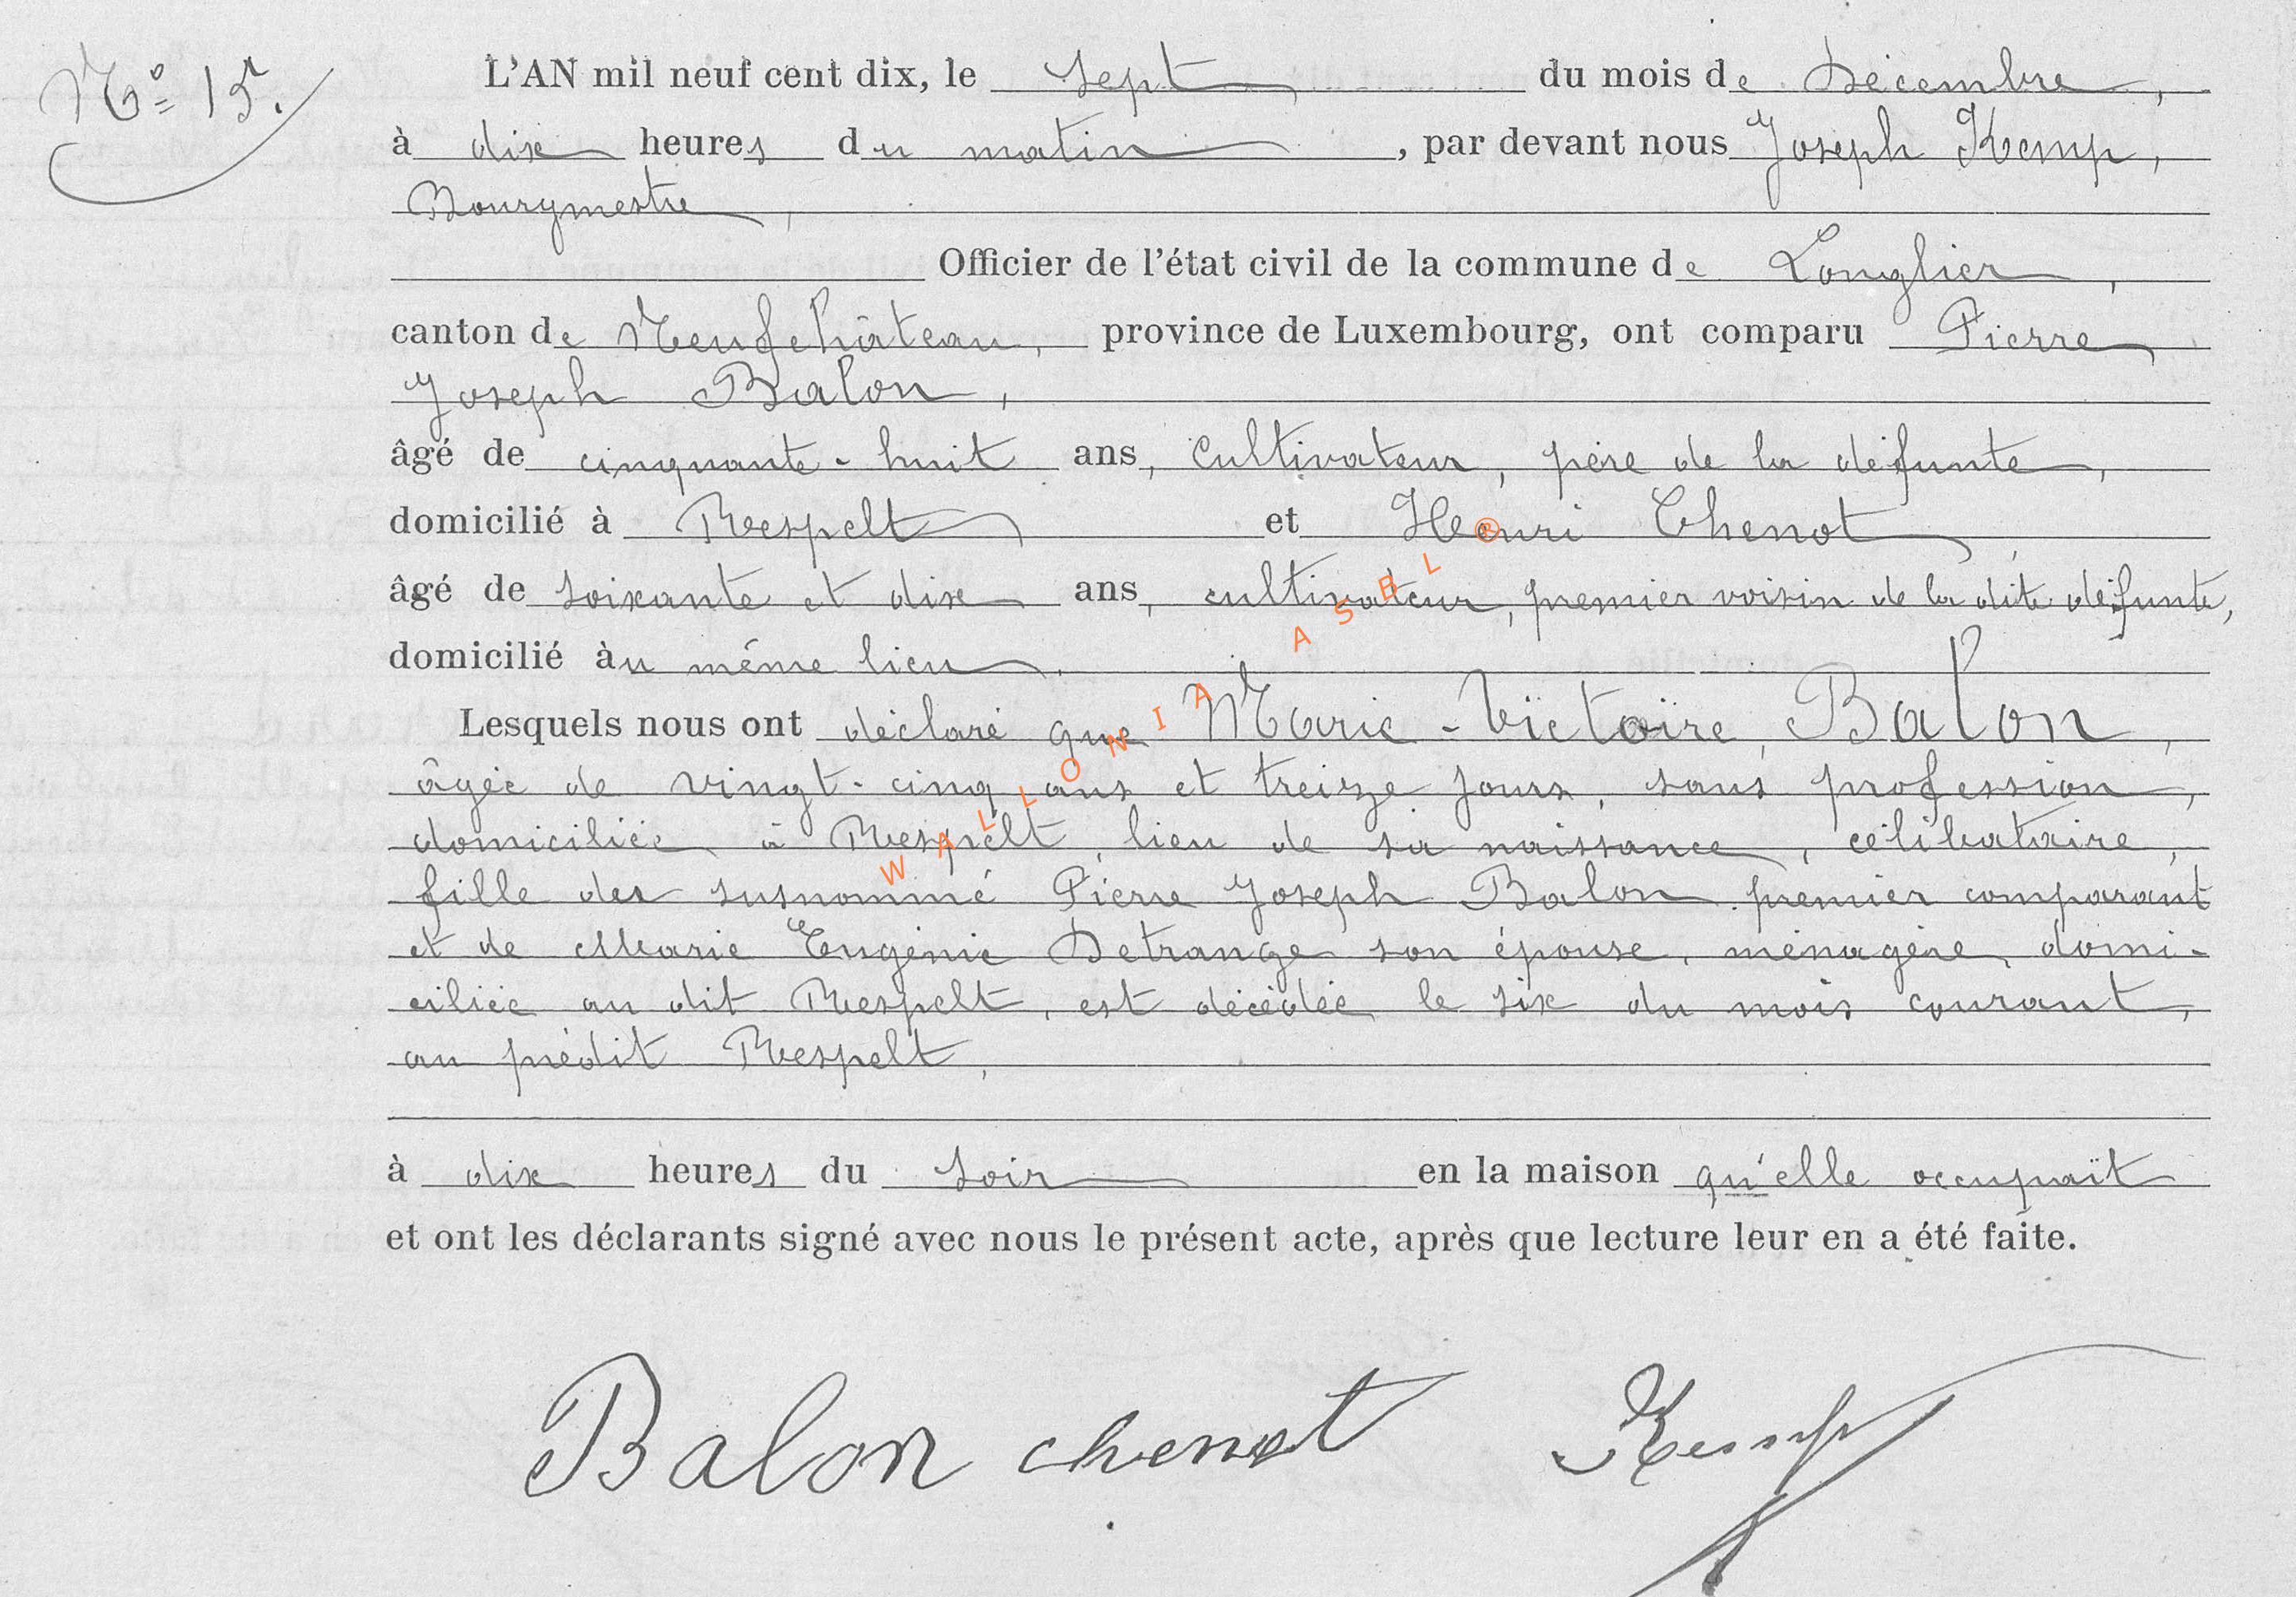 Nº 15.
L'AN mil neuf cent dix, le sept du mois de Décembre,
à dix heures du matin, par devant nous Joseph Kemp,
Bourgmestre,
Officier de l'état civil de la commune de Longlier,
canton de Neufchâteau, province de Luxembourg, ont comparu Pierre
Joseph Balon,
âgé de cinquante-huit ans, Cultivateur, père de la défunte,
domicilié à Respelt et Henri Chenot,
âgé de soixante et dix ans, cultivateur, premier voisin de la dite défunte,
domicilié àu même lieu.
Lesquels nous ont déclaré que Marie-Victoire, Balon,
âgée de vingt-cinq ans et treize jours, sans profession,
domiciliée à Respelt, lieu de sa naissance, célibataire,
fille des susnommé Pierre Joseph Balon premier comparant
et de Marie Eugénie Detrange son épouse, ménagère, domi-
ciliée au dit Respelt, est décédée le six du mois courant,
au prédit Respelt,
à dix heures du soir en la maison qu'elle occupait
et ont les déclarants signé avec nous le présent acte, après que lecture leur en a été faite.
Balon chenot Kemp
WALLONIA ASBL ®